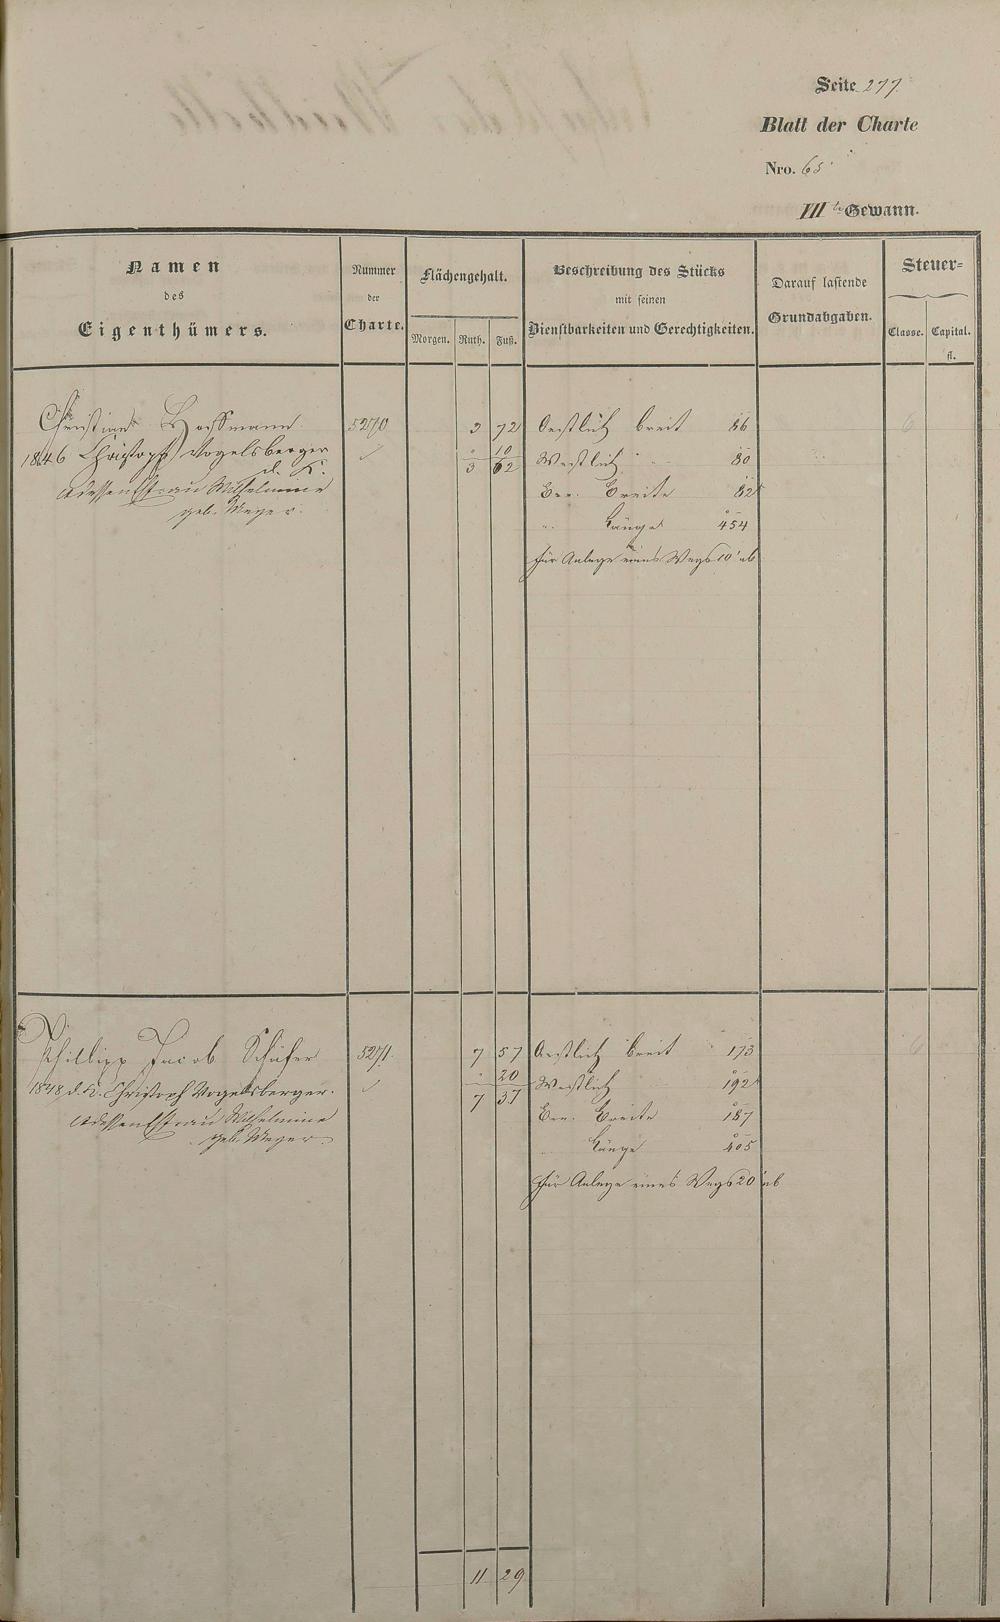 Seite 277.
Blatt der Charte
Nro. 65
VII te Gewann.
Namen
des
Eigenthümers.
Nummer
der
Charte.
Flächengehalt.
Morgen. Ruth. Fuß.
Beschreibung des Stücks
mit seinen
Dienstbarkeiten und Gerechtigkeiten.
Darauf lastende
Grundabgaben.
Steuer-
Classe. Capital.
fl.
Christian Hoffmann 5270 3 72 Oestlich breit 86
1846 Christoph Vogelsberger 10 Westlich 80
d. K. 3 62
Adessen Ehefrau Wilhelmine Ber. Breite 82
geb. Meyer. " Länge 454
für Anlage eines Wegs 10' ab
6
Phillipp Jacob Schäfer 5271. 7 57 Oestlich breit 173
1848 d. K. Christoph Vogelsberger. 20 Westlich 192
7 37
Adessen Ehefrau Wilhelmine Ber. Breite 187
geb. Meyer. Länge 405
für Anlage eines Wegs 20' ab
6
11 29